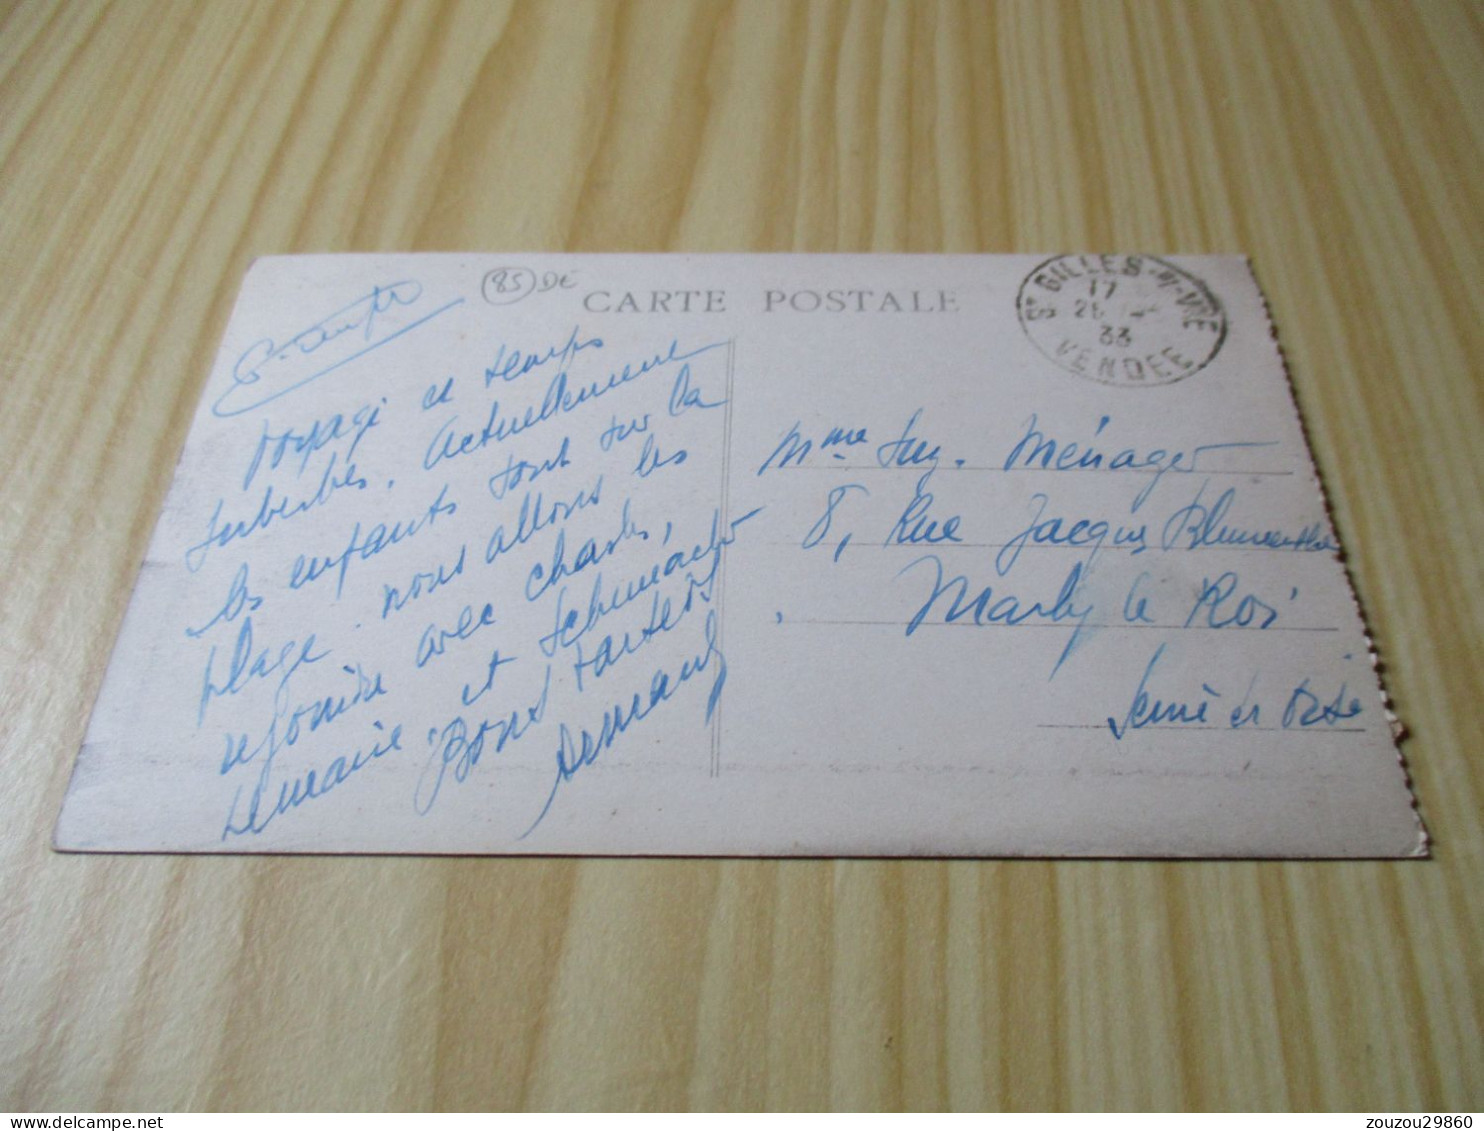 85 DE
CARTE POSTALE
ST GILLES-S-VIE
17
33
VENDEE
voyage et temps
superbes. Actuellement
les enfants sont sur la
plage. nous allons les
rejoindre avec Charles,
Lemaire. et Schumacher
Bons baisers
Armand
Mme Suz. Ménager
8, Rue Jacques Blumenthal
Marly le Roi
Seine et Oise
zouzou29860
delcampe.net